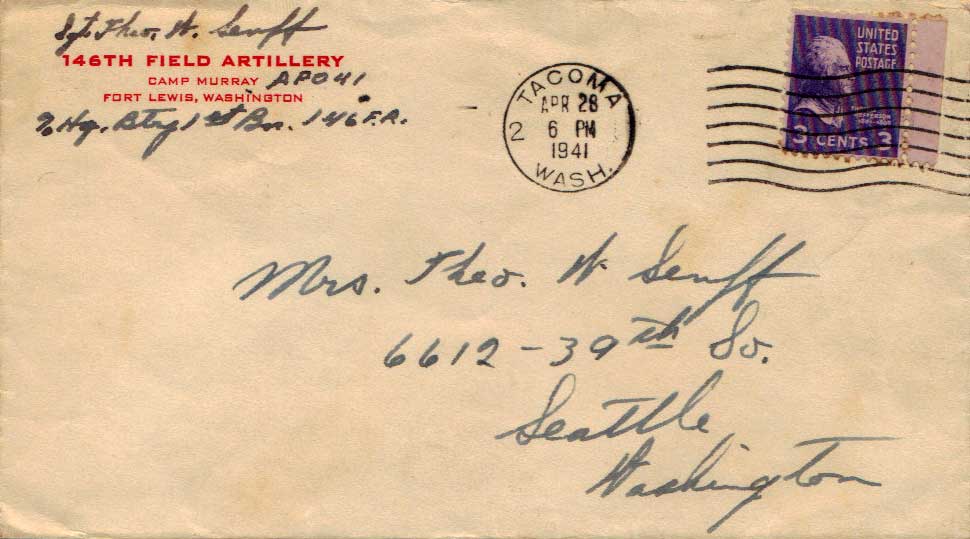 Sgt. Theo. W. Senff
146TH FIELD ARTILLERY
CAMP MURRAY APO 41
FORT LEWIS, WASHINGTON
℅ Hq. Btry 1st Bn. 146 F.A.
TACOMA
2
APR 28
6 PM
1941
WASH.
UNITED
STATES
POSTAGE
JEFFERSON
3 CENTS 3
Mrs. Theo. W. Senff
6612 - 39th So.
Seattle,
Washington